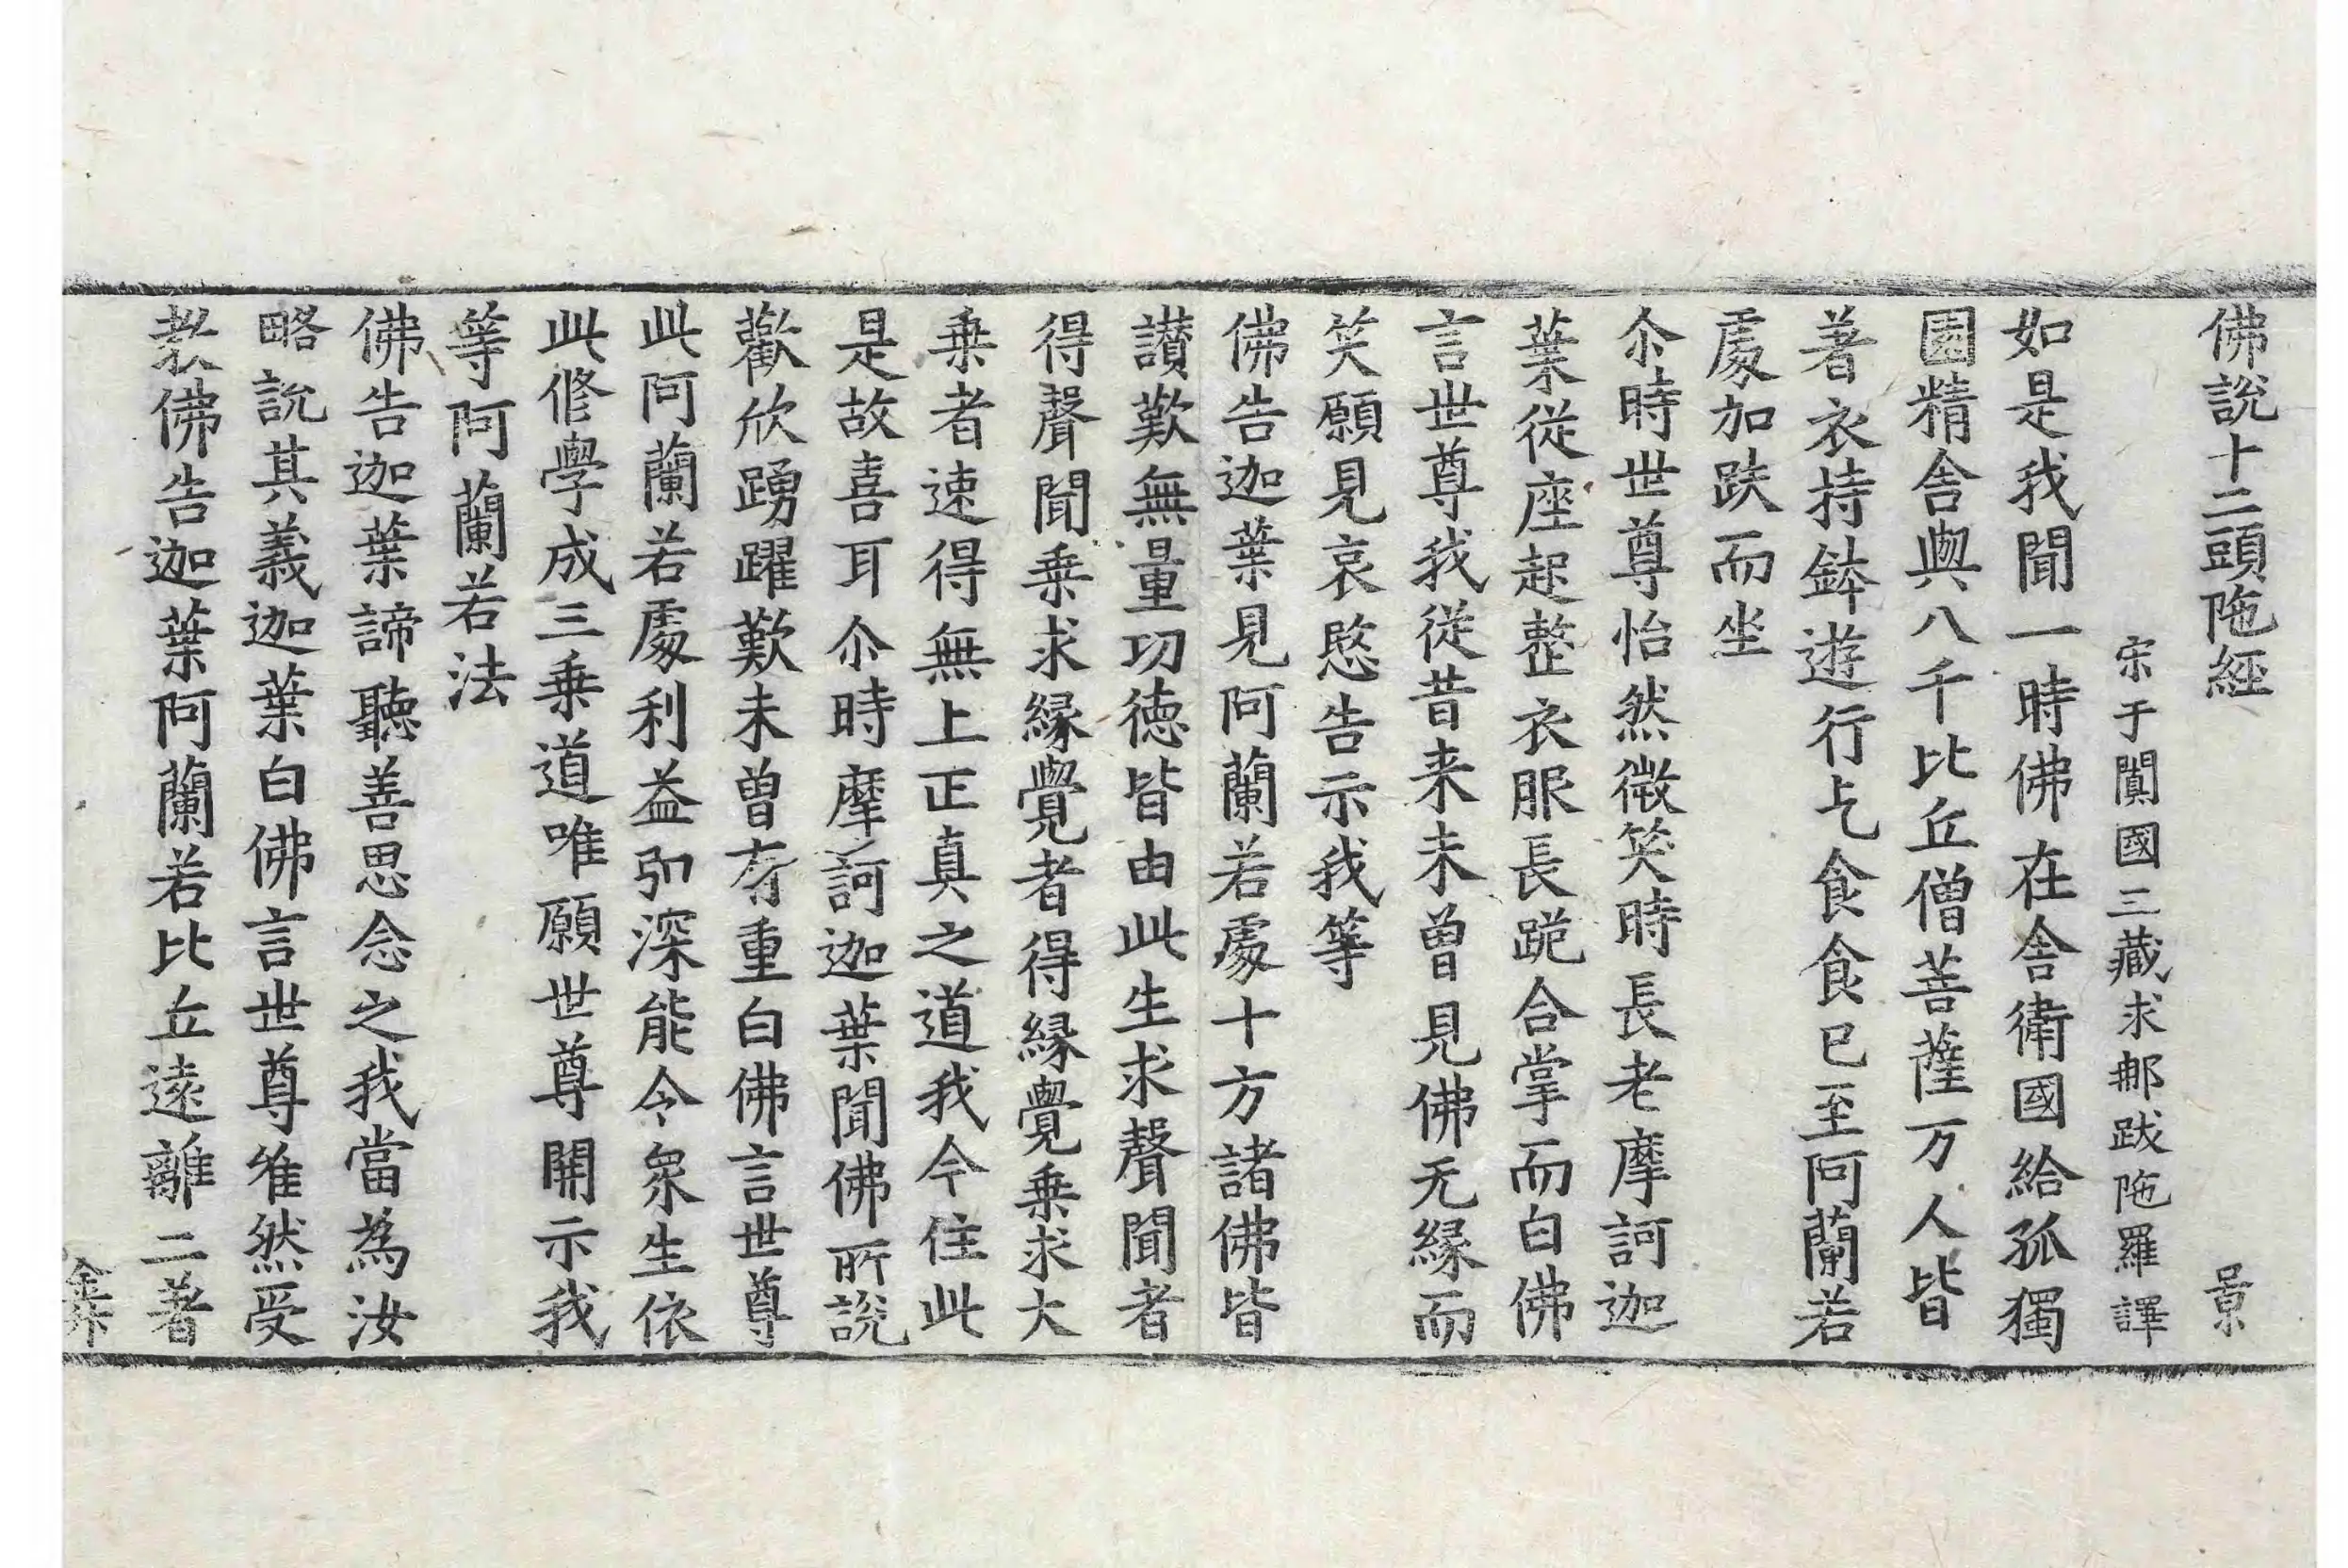 佛說十二頭陁經 景
宋于闐國三藏求那跋陁羅譯
如是我聞一時佛在舍衛國給孤獨
園精舍與八千比丘僧菩薩万人皆
著衣持鉢遊行乞食食已至阿蘭若
處加趺而坐
尒時世尊怡然微笑時長老摩訶迦
葉從座起整衣服長跪合掌而白佛
言世尊我從昔来未曾見佛无緣而
笑願見哀愍告示我等
佛告迦葉見阿蘭若處十方諸佛皆
讃歎無量功德皆由此生求聲聞者
得聲聞乗求緣覺者得緣覺乗求大
乗者速得無上正真之道我今住此
是故喜耳尒時摩訶迦葉聞佛所說
歡欣踴躍歎未曾有重白佛言世尊
此阿蘭若處利益弘深能令衆生依
此修學成三乗道唯願世尊開示我
等阿蘭若法
佛告迦葉諦聽善思念之我當為汝
略說其義迦葉白佛言世尊唯然受
教佛告迦葉阿蘭若比丘遠離二著